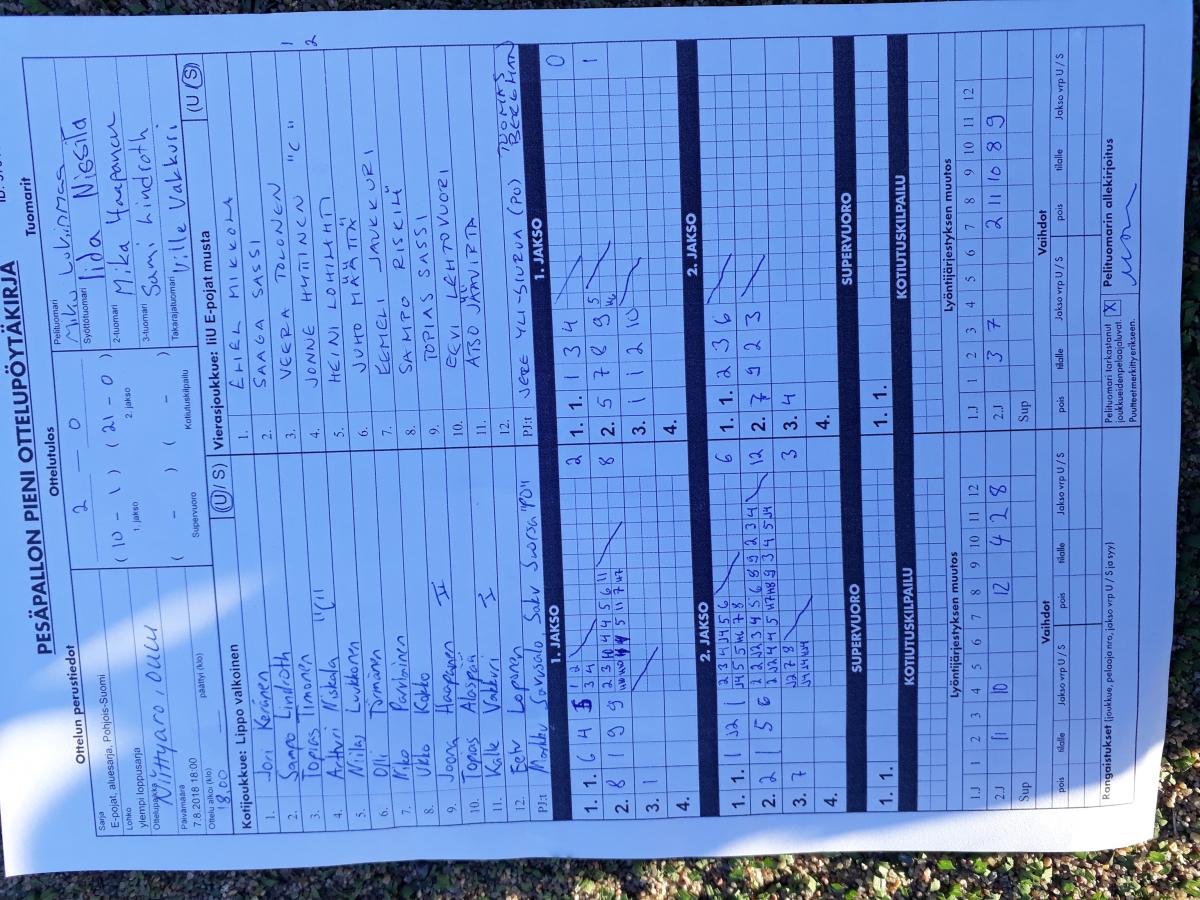 PESÄPALLON PIENI OTTELUPÖYTÄKIRJA
Ottelun perustiedot
Sarja
E-pojat, aluesarja, Pohjois-Suomi
Lohko
ylempi loppusarja
Ottelupaikka
Niittyaro, OULU
Päivämäärä
7.8.2018 18:00
Ottelu alkoi (klo)
18.00
päättyi (klo)
Ottelutulos
2 — 0
(10 - 1) (21 - 0)
1. jakso 2. jakso
( - ) ( - )
Supervuoro Kotiutuskilpailu
Tuomarit
Pelituomari
Syöttötuomari
Iida Nissilä
2-tuomari
Mika Haapanen
3-tuomari
Sami Lindroth
Takarajatuomari
Ville Vakkuri
Kotijoukkue: Lippo valkoinen (U / S)
1. Joni Keränen
2. Sampo Lindroth
3. Topias Timonen
4. Artturi Niskala "C"
5. Niilas Luukkonen
6. Olli Turmänen
7. Niko Parviainen
8. Ukko Kokko
9. Joona Haapanen II
10. Topias Alaspää
11. Kalle Vakkuri I
12. Eetu Leponen
PJ:t Markku Sarasalo, Saku Suorsa "PO"
Vierasjoukkue: IiIU E-pojat musta (U / S)
1. EMEL MIKKOLA
2. SAAGA SASSI
3. VEERA TOLONEN 1
4. JONNE HYTINEN "C" 2
5. HEINI LOHILAHTI
6. JUHO MÄÄTTÄ
7. EEMELI JAUKKURI
8. SAMPO RISKILÄ
9. TOPIAS SASSI
10. EEVI LEHTOVUORI
11. ATSO JÄÄVIRTA
12.
PJ:t JERE YLI-SIURUA (PO) TUOMAS BERGMAN
1. JAKSO
1. 1. 6 4 5 1 2 2
3 4
2. 8 1 9 9 2 3 10 4 4 5 6 11 8
3. 1
4.
1. JAKSO
1. 1. 1 3 4 0
2. 5 7 8 9 5 1
3. 1 1 2 10
4.
2. JAKSO
1. 1. 1 J2 1 2 3 4 J4 5 6 6
J4 5 5 7 8
2. 2 1 5 6 2 2 J2 3 4 5 6 8 9 2 3 4 12
3. 7 J2 7 8 3
4.
2. JAKSO
1. 1. 2 3 6
2. 7 9 2 3
3. 4
4.
SUPERVUORO
1. 1.
SUPERVUORO
1. 1.
KOTIUTUSKILPAILU
KOTIUTUSKILPAILU
Lyöntijärjestyksen muutos
1.J 1 2 3 4 5 6 7 8 9 10 11 12
2.J 11 10 12 4 2 8
Sup
Lyöntijärjestyksen muutos
1.J 1 2 3 4 5 6 7 8 9 10 11 12
2.J 3 7 2 11 10 8 9
Sup
Vaihdot
pois tilalle Jakso vrp U / S pois tilalle Jakso vrp U / S
Vaihdot
pois tilalle Jakso vrp U / S pois tilalle Jakso vrp U / S
Rangaistukset (joukkue, pelaaja nro, jakso vrp U / S ja syy)
Pelituomari tarkastanut X
joukkueiden pelaajaluvat.
Puutteet merkitty erikseen.
Pelituomarin allekirjoitus